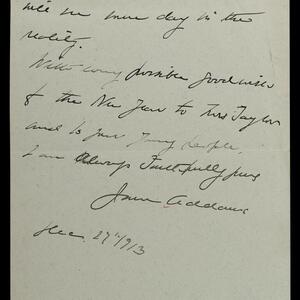 will one more day in the
reality.
With every possible good wish
of the New Year to Mrs Taylor
and to your young people,
I am always faithfully yours
Jane Addams
Dec. 27" 1913